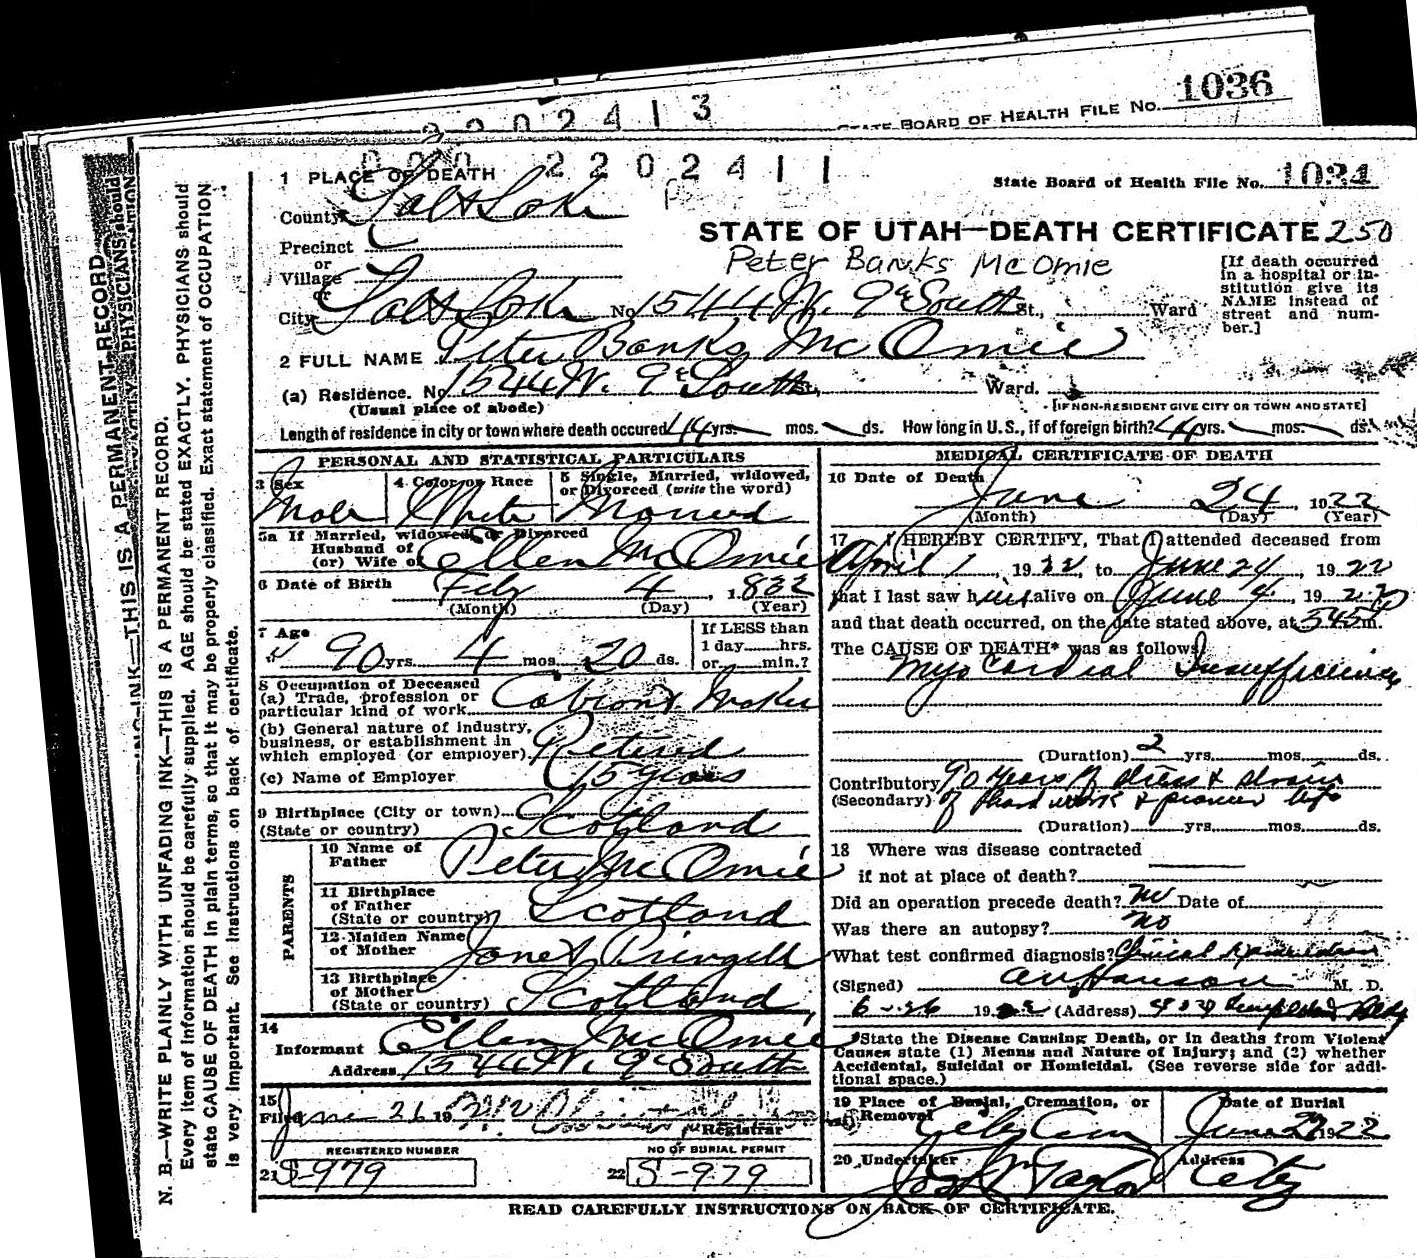 STATE BOARD OF HEALTH FILE No. 1036
2202413
2202411
1 PLACE OF DEATH
State Board of Health File No. 1034
County Salt Lake
STATE OF UTAH—DEATH CERTIFICATE 250
Precinct
or
Village
or
Peter Banks McOmie
[If death occurred in a hospital or institution give its NAME instead of street and number.]
City Salt Lake No. 1544 W. 9th South St., Ward
2 FULL NAME Peter Banks McOmie
(a) Residence. No. 1544 W. 9th South. Ward.
(Usual place of abode)
[IF NON-RESIDENT GIVE CITY OR TOWN AND STATE]
Length of residence in city or town where death occured 44 yrs. mos. ds. How long in U.S., if of foreign birth? 44 yrs. mos. ds.
PERSONAL AND STATISTICAL PARTICULARS
3 Sex
Male
4 Color or Race
White
5 Single, Married, widowed, or Divorced (write the word)
Married
5a If Married, widowed, or Divorced
Husband of
(or) Wife of Ellen McOmie
6 Date of Birth Feby 4, 1832
(Month) (Day) (Year)
7 Age
90 yrs. 4 mos. 20 ds.
If LESS than
1 day hrs.
or min.?
8 Occupation of Deceased
(a) Trade, profession or
particular kind of work Cabinet Maker
(b) General nature of industry,
business, or establishment in
which employed (or employer). Retired
(c) Name of Employer 15 years
9 Birthplace (City or town)
(State or country) Scotland
PARENTS
10 Name of
Father Peter McOmie
11 Birthplace
of Father
(State or country) Scotland
12 Maiden Name
of Mother Janet Pringell
13 Birthplace
of Mother
(State or country) Scotland
14
Informant Ellen McOmie
Address 1544 W. 9th South
15
Filed June 26 19
Registrar
REGISTERED NUMBER
21 S-979
NO OF BURIAL PERMIT
22 S-979
MEDICAL CERTIFICATE OF DEATH
16 Date of Death
June 24, 1922
(Month) (Day) (Year)
17 I HEREBY CERTIFY, That I attended deceased from
April 1, 1922, to June 24, 1922
that I last saw him alive on June 4, 1922
and that death occurred, on the date stated above, at 545 m.
The CAUSE OF DEATH* was as follows:
Myocardial Insufficiency
(Duration) 2 yrs. mos. ds.
Contributory 90 years of stress & strain
(Secondary) of hard work & pioneer life
(Duration) yrs. mos. ds.
18 Where was disease contracted
if not at place of death?
Did an operation precede death? No Date of
Was there an autopsy? No
What test confirmed diagnosis? Clinical
(Signed) M. D.
6-26 1922 (Address)
*State the Disease Causing Death, or in deaths from Violent
Causes state (1) Means and Nature of Injury; and (2) whether
Accidental, Suicidal or Homicidal. (See reverse side for additional space.)
19 Place of Burial, Cremation, or
Removal
City Cem
Date of Burial
June 27 1922
20 Undertaker
Jos Wm Taylor
Address
City
READ CAREFULLY INSTRUCTIONS ON BACK OF CERTIFICATE.
N. B.—WRITE PLAINLY WITH UNFADING INK—THIS IS A PERMANENT RECORD.
Every item of information should be carefully supplied. AGE should be stated EXACTLY. PHYSICIANS should
state CAUSE OF DEATH in plain terms, so that it may be properly classified. Exact statement of OCCUPATION
is very important. See instructions on back of certificate.
ING INK—THIS IS A PERMANENT RECORD